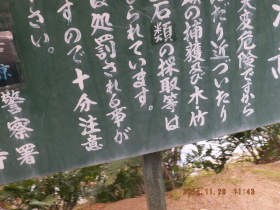 大変危険ですから
だり近づいたり
類の捕獲及び水・竹
石類の採取等は
られています。
は処罰される事が
すので十分注意
さい。
警察署
2013.11.29 11:43